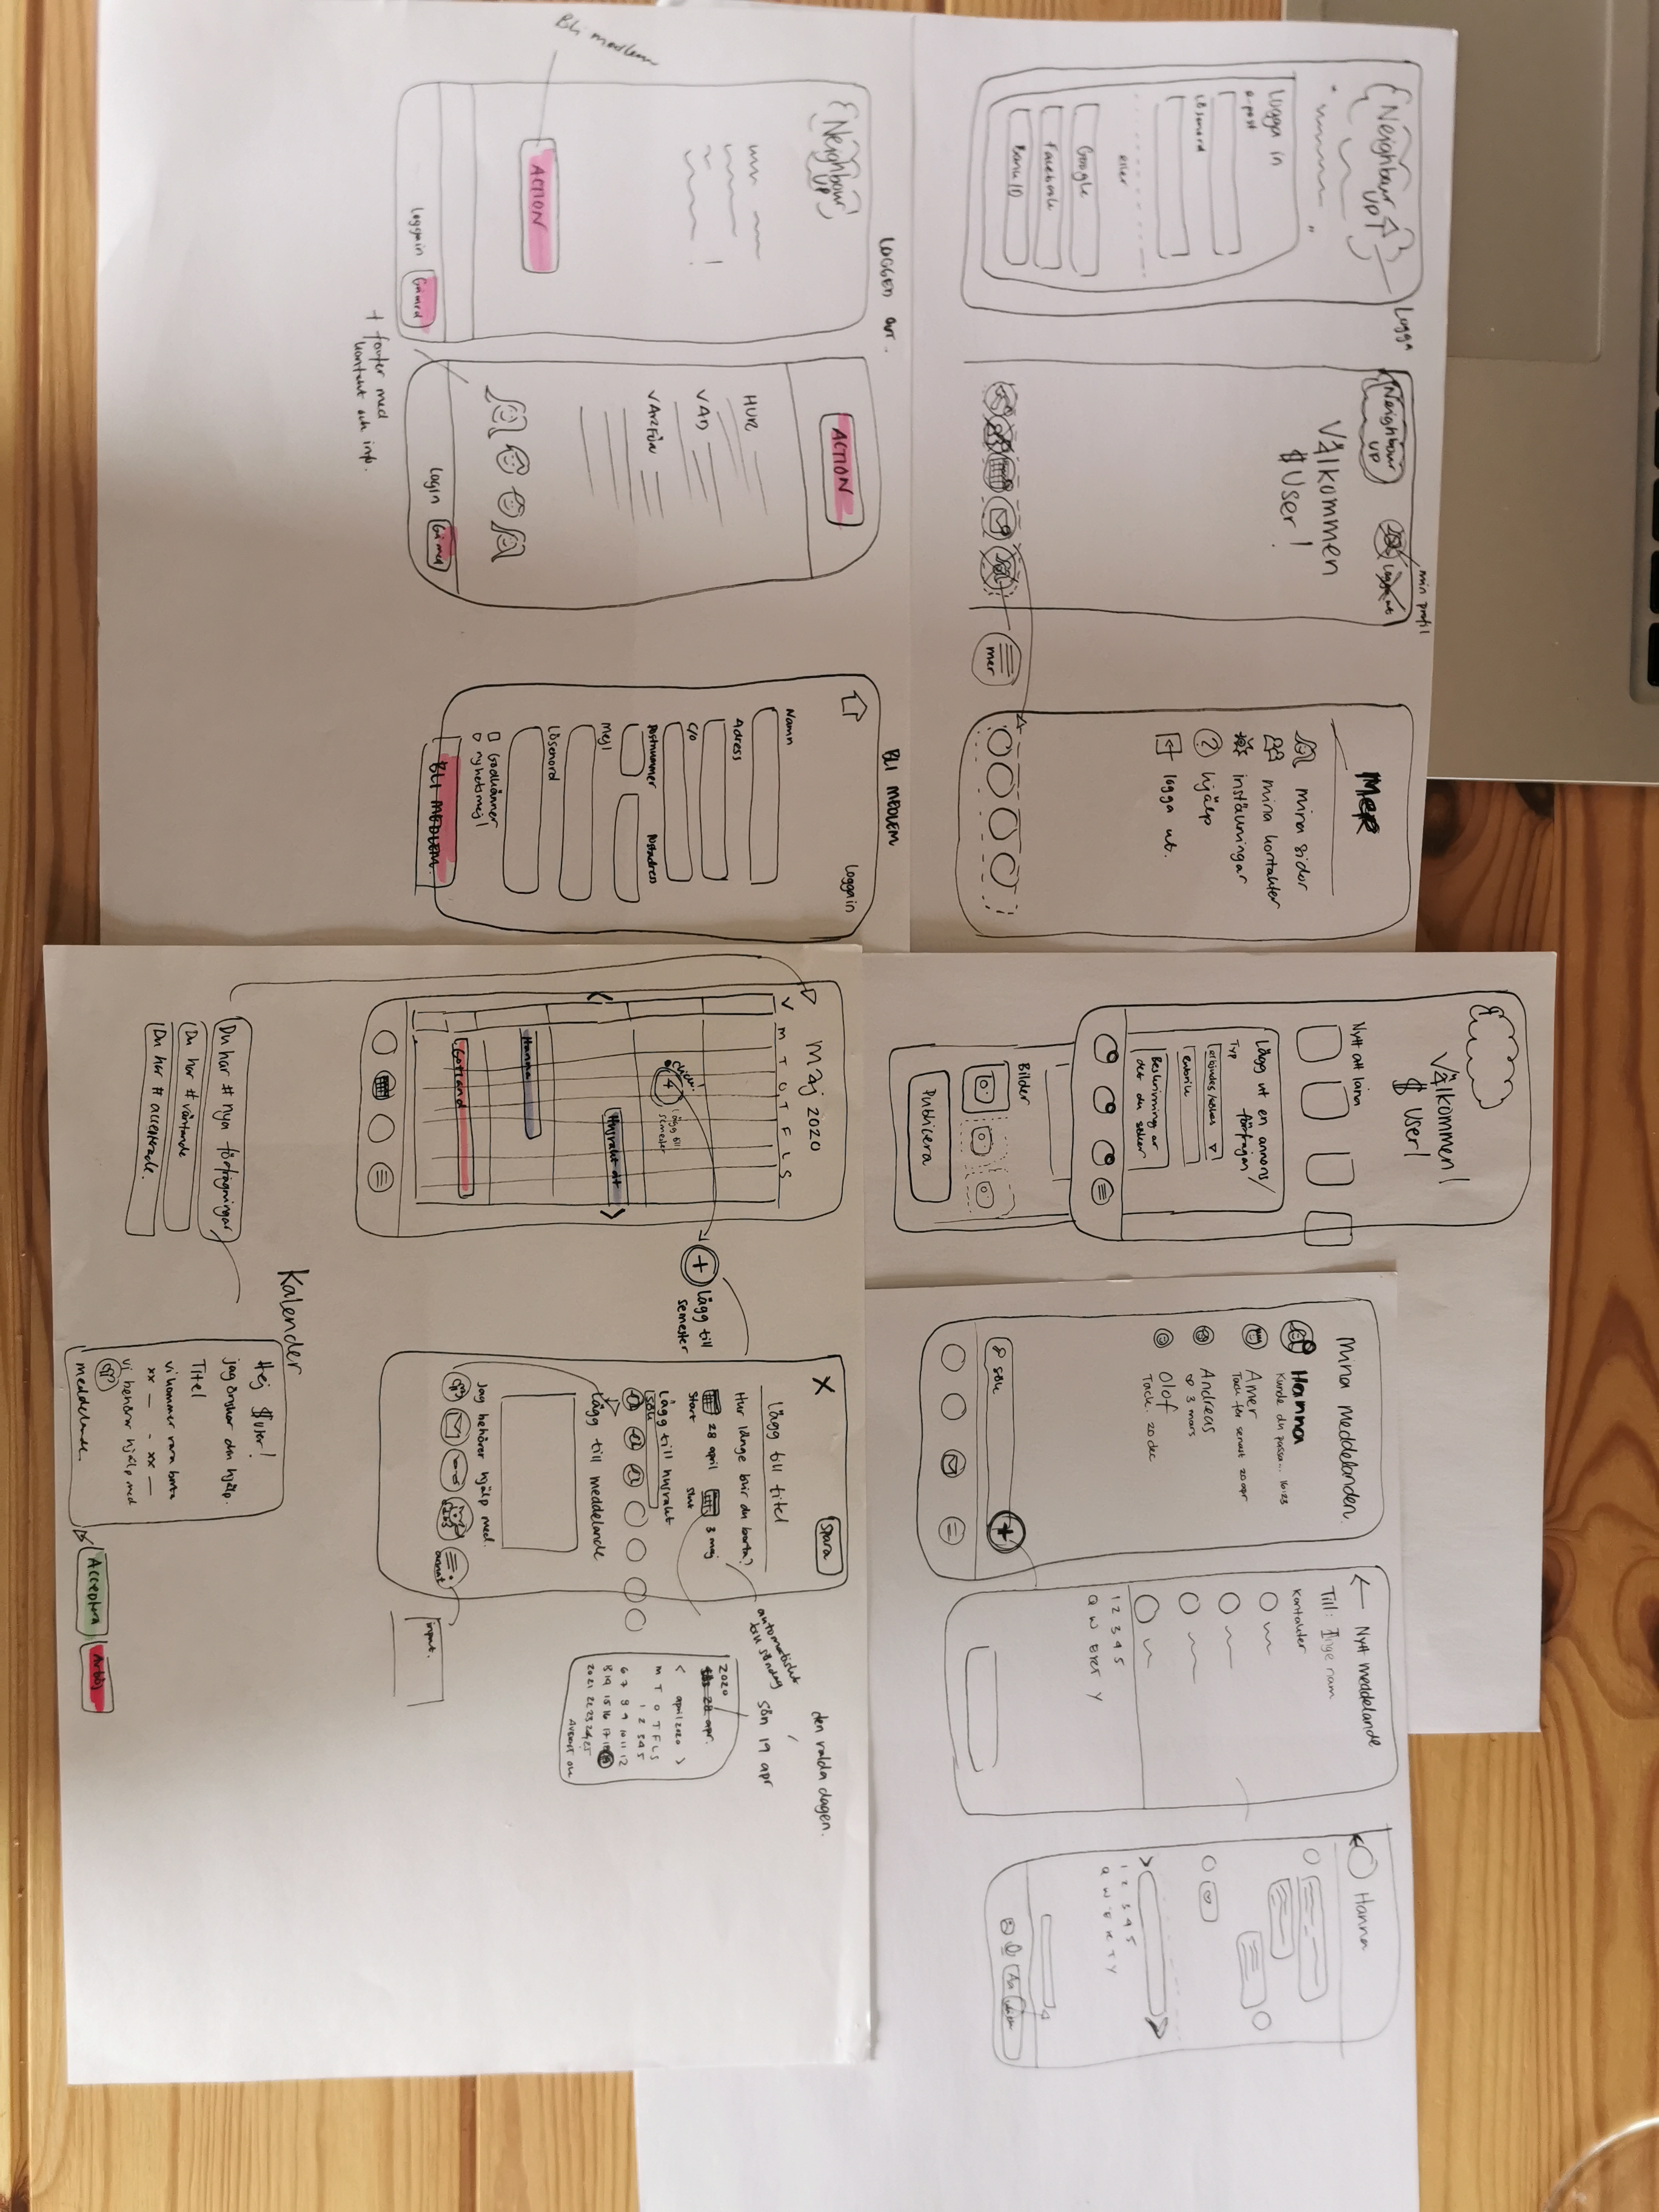 Neighbour
UP
Logga
Logga in
e-post
Lösenord
eller
Google
Facebook
Bank ID
Neighbour
UP
min profil
Logga ut
Välkommen
$ User!
mer
Mer
mina sidor
mina kontakter
inställningar
? hjälp
logga ut.
Välkommen!
$ User!
Nytt att låna
Lägg ut en annons/
förfrågan
Typ
erbjudes/sökes
Rubrik
Beskrivning av
det du söker
Bilder
Publicera
Mina meddelanden
Hanna
Kunde du passa... 16:23
Amer
Tack för senast 20 apr
Andreas
3 mars
Olof
Tack. 20 dec
sök
+
Nytt meddelande
Till: Ange nam
Kontakter
1 2 3 4 5
Q W E R T Y
Hanna
1 2 3 4 5
Q W E R T Y
Aa
LOGGED OUT.
Neighbour
UP
!
Bli medlem
ACTION
Logga in
Gå med
ACTION
HUR
VAD
VARFÖR
Login
Gå med
+ footer med
kontakt och info.
BLI MEDLEM
Logga in
Namn
Adress
C/O
Postnummer Postadress
Mejl
Lösenord
Godkänner
nyhetsmejl
BLI MEDLEM
Maj 2020
V M T O T F L S
lägg till
semester
Husvakt åt
Hanna
Gotland
+ Lägg till
semester
X
Spara
Lägg till titel
Hur länge blir du borta?
28 april 3 maj
Start Slut
Lägg till husvakt
sök
Lägg till meddelande
Jag behöver hjälp med.
annat
input.
automatiskt
till söndag
den valda dagen.
sön 19 apr
2020
28 apr.
< april 2020 >
M T O T F L S
1 2 3 4 5
6 7 8 9 10 11 12
Avbryt OK
Kalender
Du har # nya förfrågningar
Du har # väntande
Du har # accepterade.
Hej $user!
jag önskar din hjälp.
Titel
vi kommer vara borta
xx — - xx —
vi behöver hjälp med
meddelande
Acceptera
Avböj